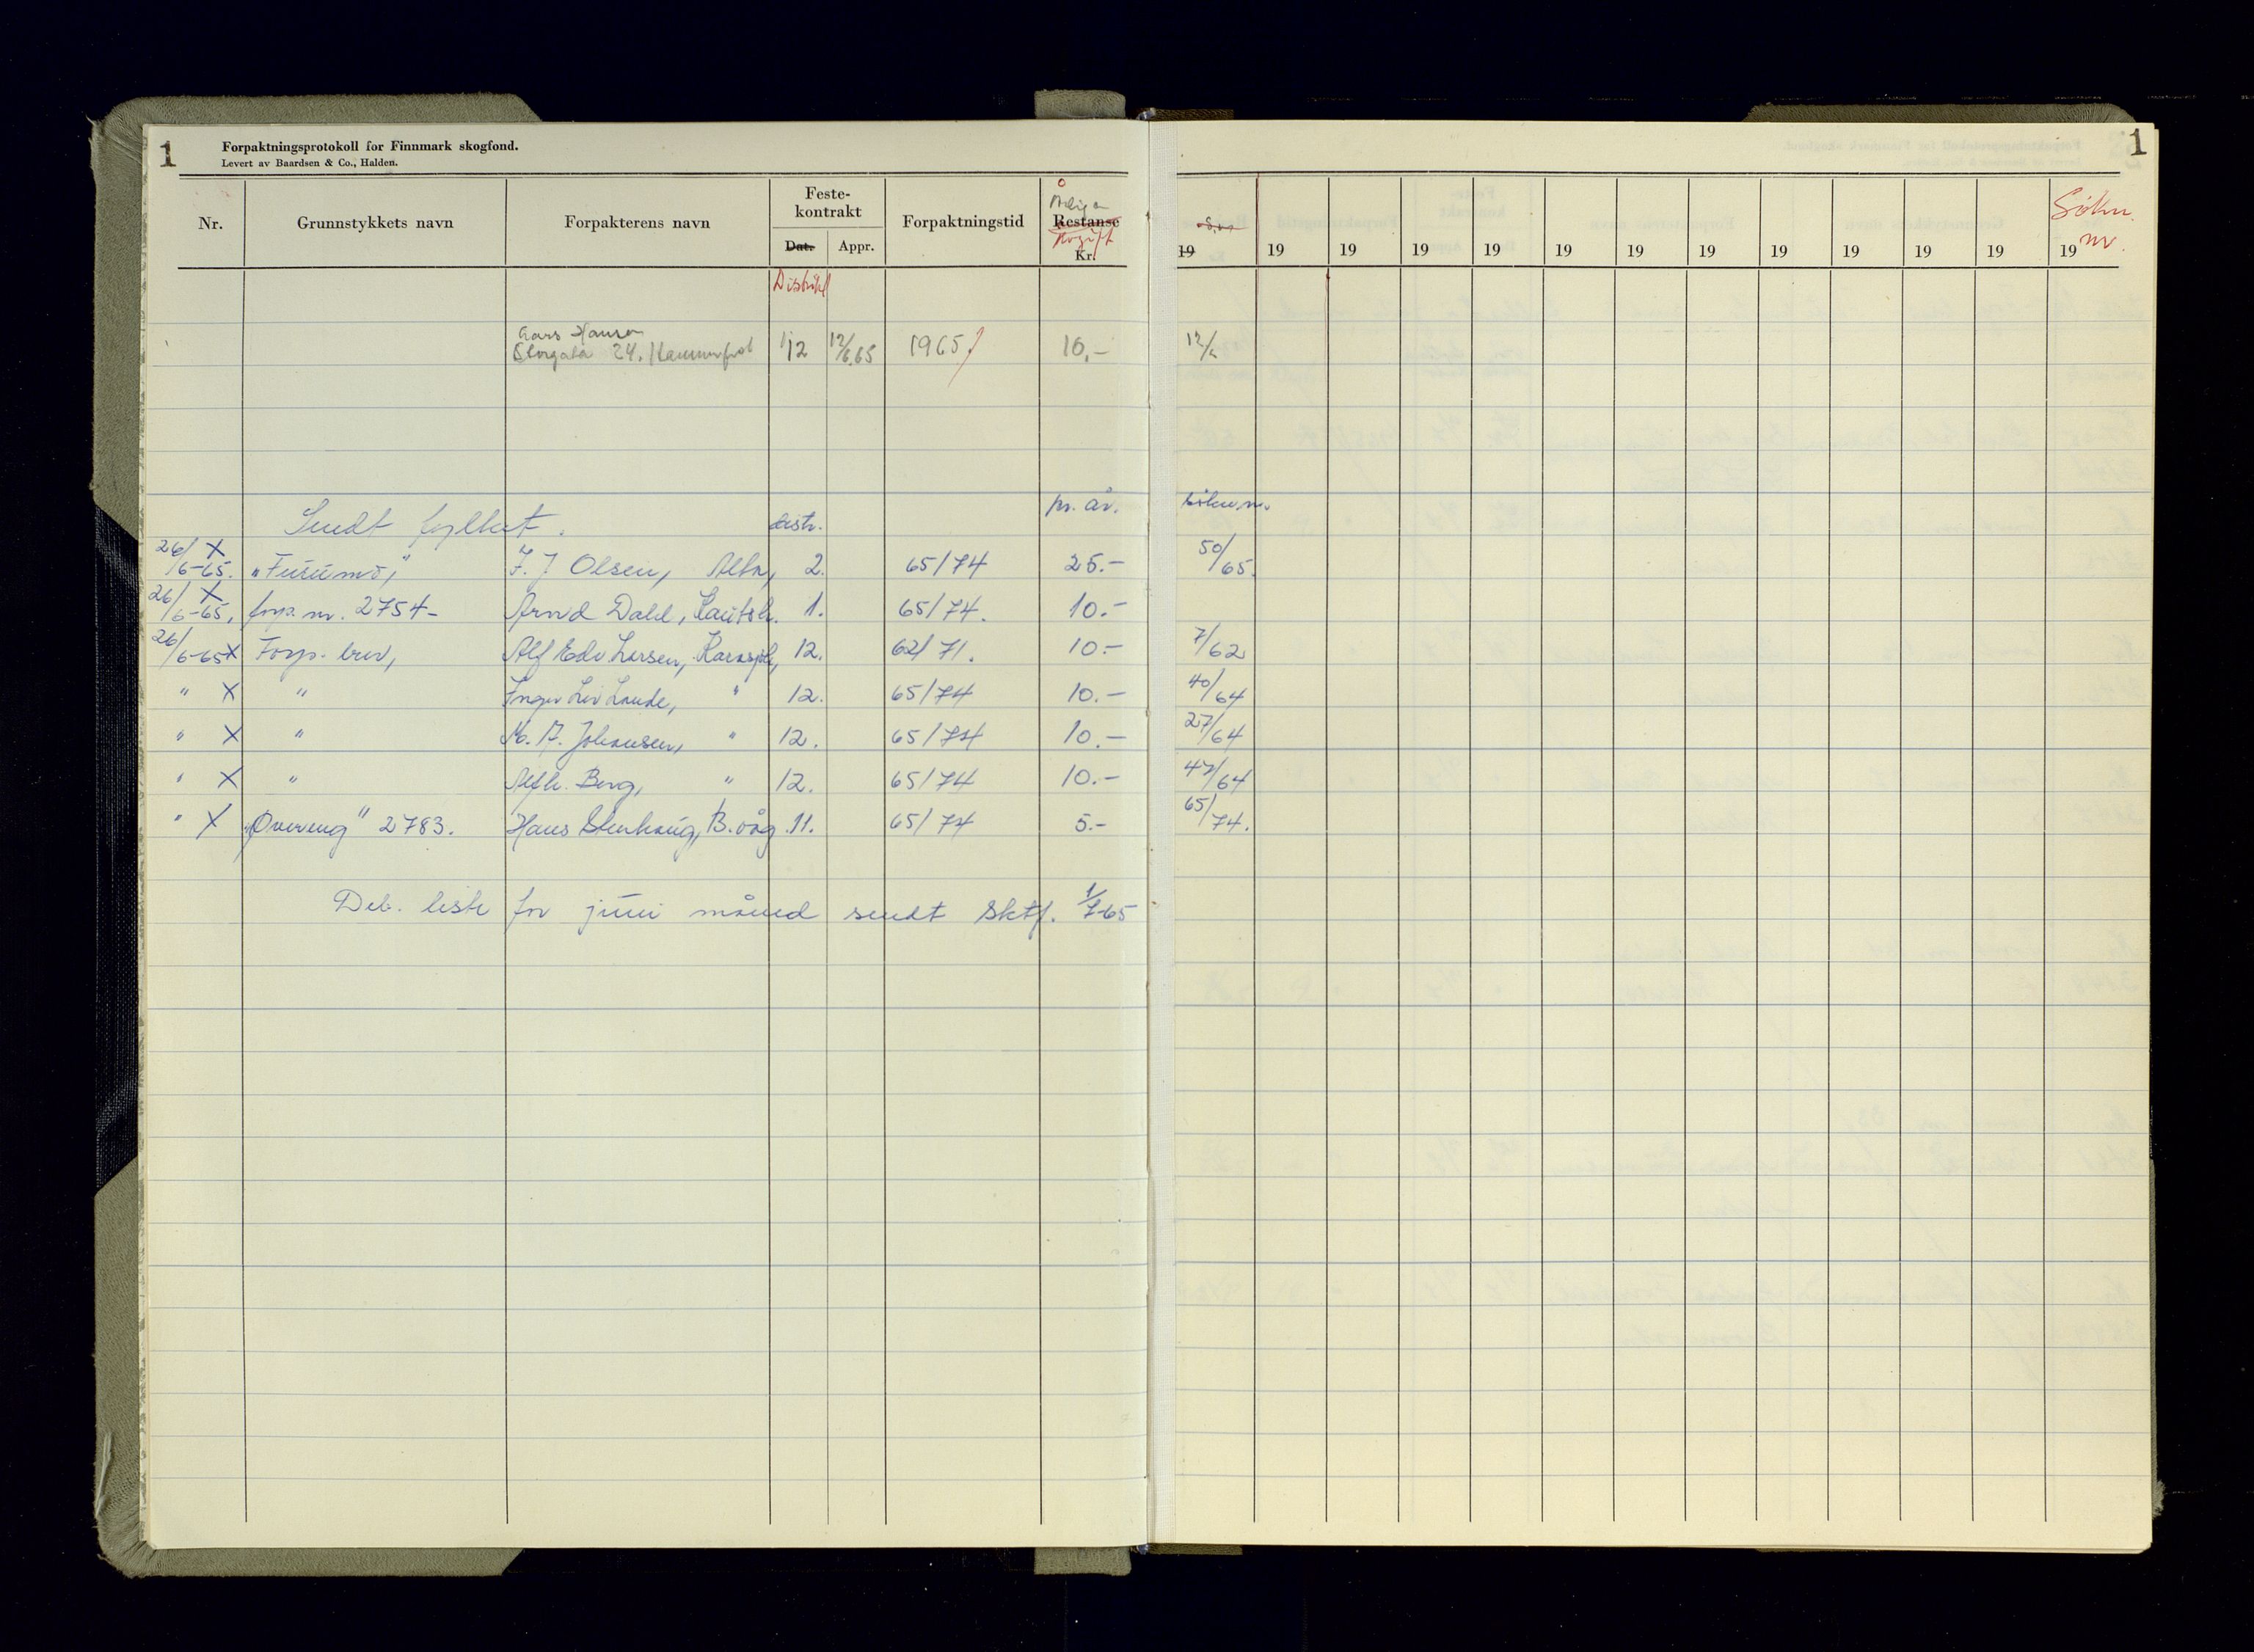 1 Forpaktningsprotokoll for Finnmark skogfond. 1
Levert av Baardsen & Co., Halden.
Nr. Grunnstykkets navn Forpakterens navn Feste-kontrakt Dat. Appr. Forpaktningstid Årlig Restanse Avgift Kr. 19 19 19 19 19 19 19 19 19 19 19 19 19 Søkn. nr.
Distrikt
Hansen
Storgata 24. Hammerfest 12 12/6.65 1965 10,- 12/
Sendt fylket. distr. pr. år. søkn.nr.
26/6-65. X "Furumo," F. J Olsen, Alta, 2. 65/74 25.- 50/65.
26/6-65. X forp. nr. 2754- Arvid Dahl, Kautok. 1. 65/74. 10.-
26/6-65 X Forp. brev, Alf Edv Larsen, Karasjok, 12. 62/71. 10.- 7/62
" X " Inger Liv Lande, " 12. 65/74 10.- 40/64
" X " K. A. Johansen, " 12. 65/74 10.- 27/64
" X " Alfh. Berg, " 12. 65/74 10.- 47/64
" X "Övereng" 2783. Hans Stenhaug, B.våg. 11. 65/74 5.- 65/74.
Deb. liste for juni måned sendt Sktf. 1/7-65